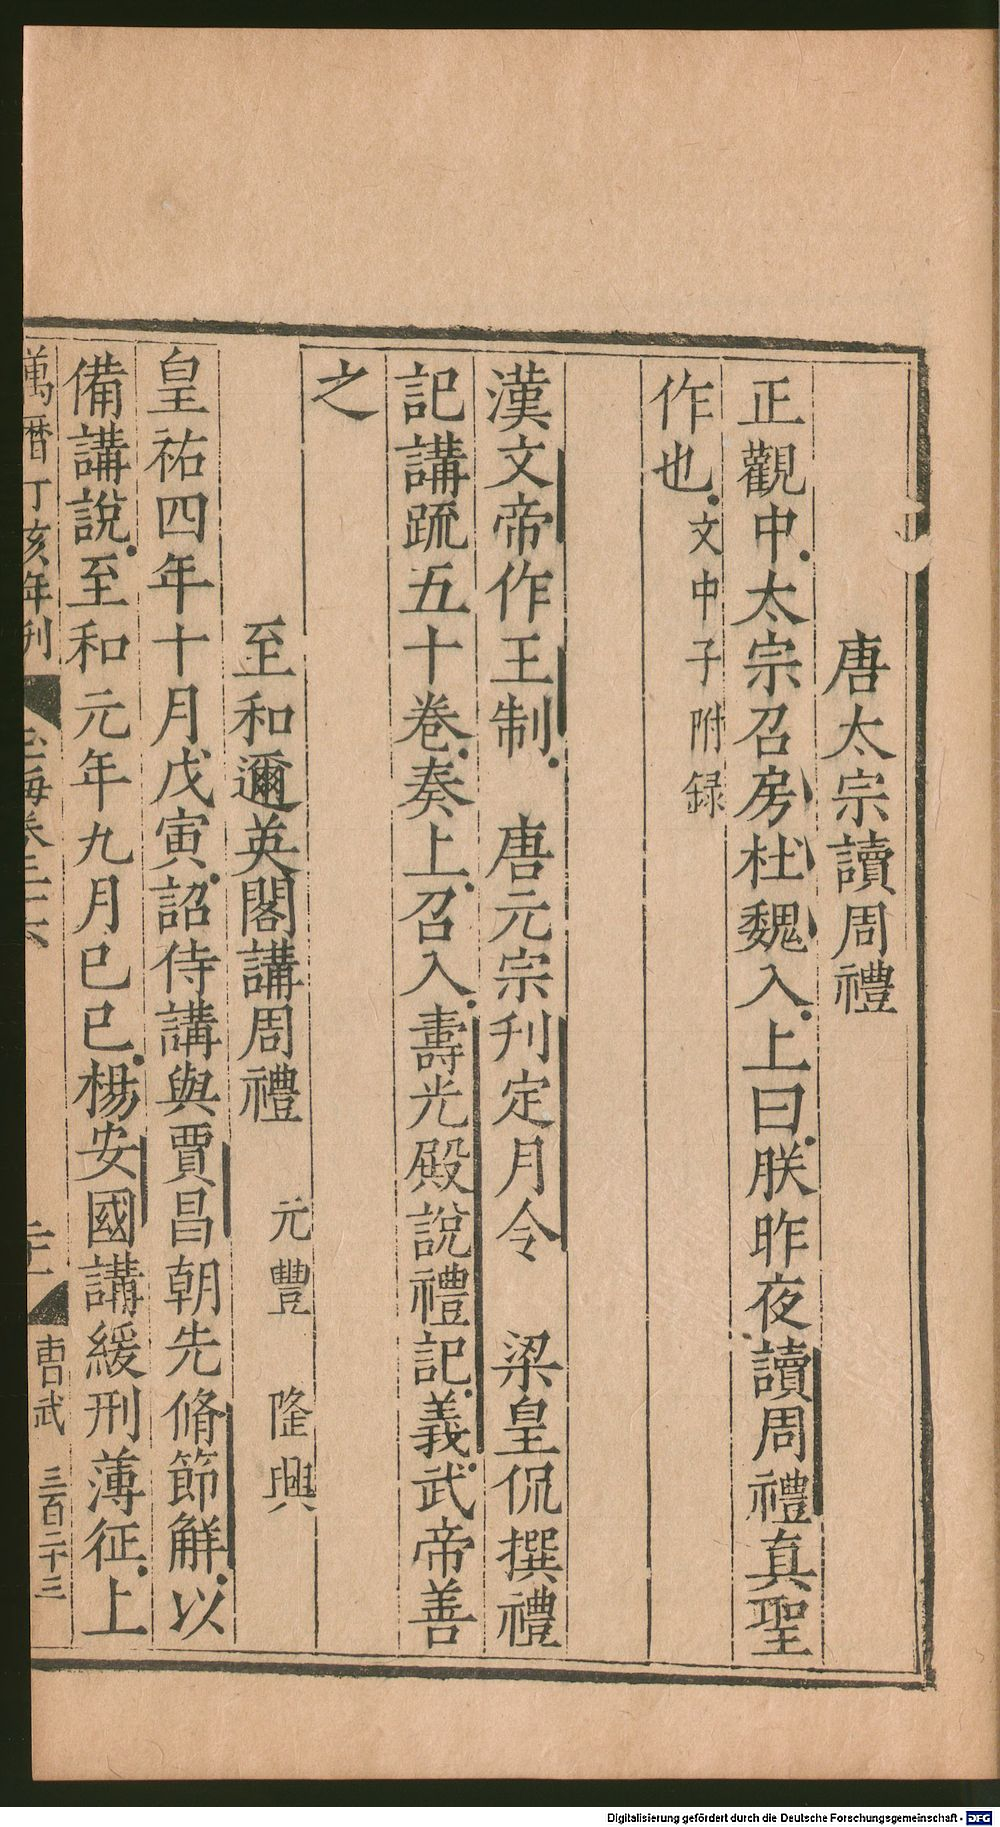 唐太宗讀周禮
正觀中太宗召房杜魏入上曰朕昨夜讀周禮真聖
作也文中子附録
漢文帝作王制 唐元宗刋定月令 梁皇侃撰禮
記講䟽五十卷奏上召入壽光殿說禮記義武帝善
之
至和邇英閣講周禮 元豐 隆興
皇祐四年十月戊寅詔侍講與賈昌朝先脩節解以
備講說至和元年九月已已楊安國講緩刑薄征上
萬曆丁亥年刋 玉海卷三十六 曹武 三百二十三
Digitalisierung gefördert durch die Deutsche Forschungsgemeinschaft - DFG